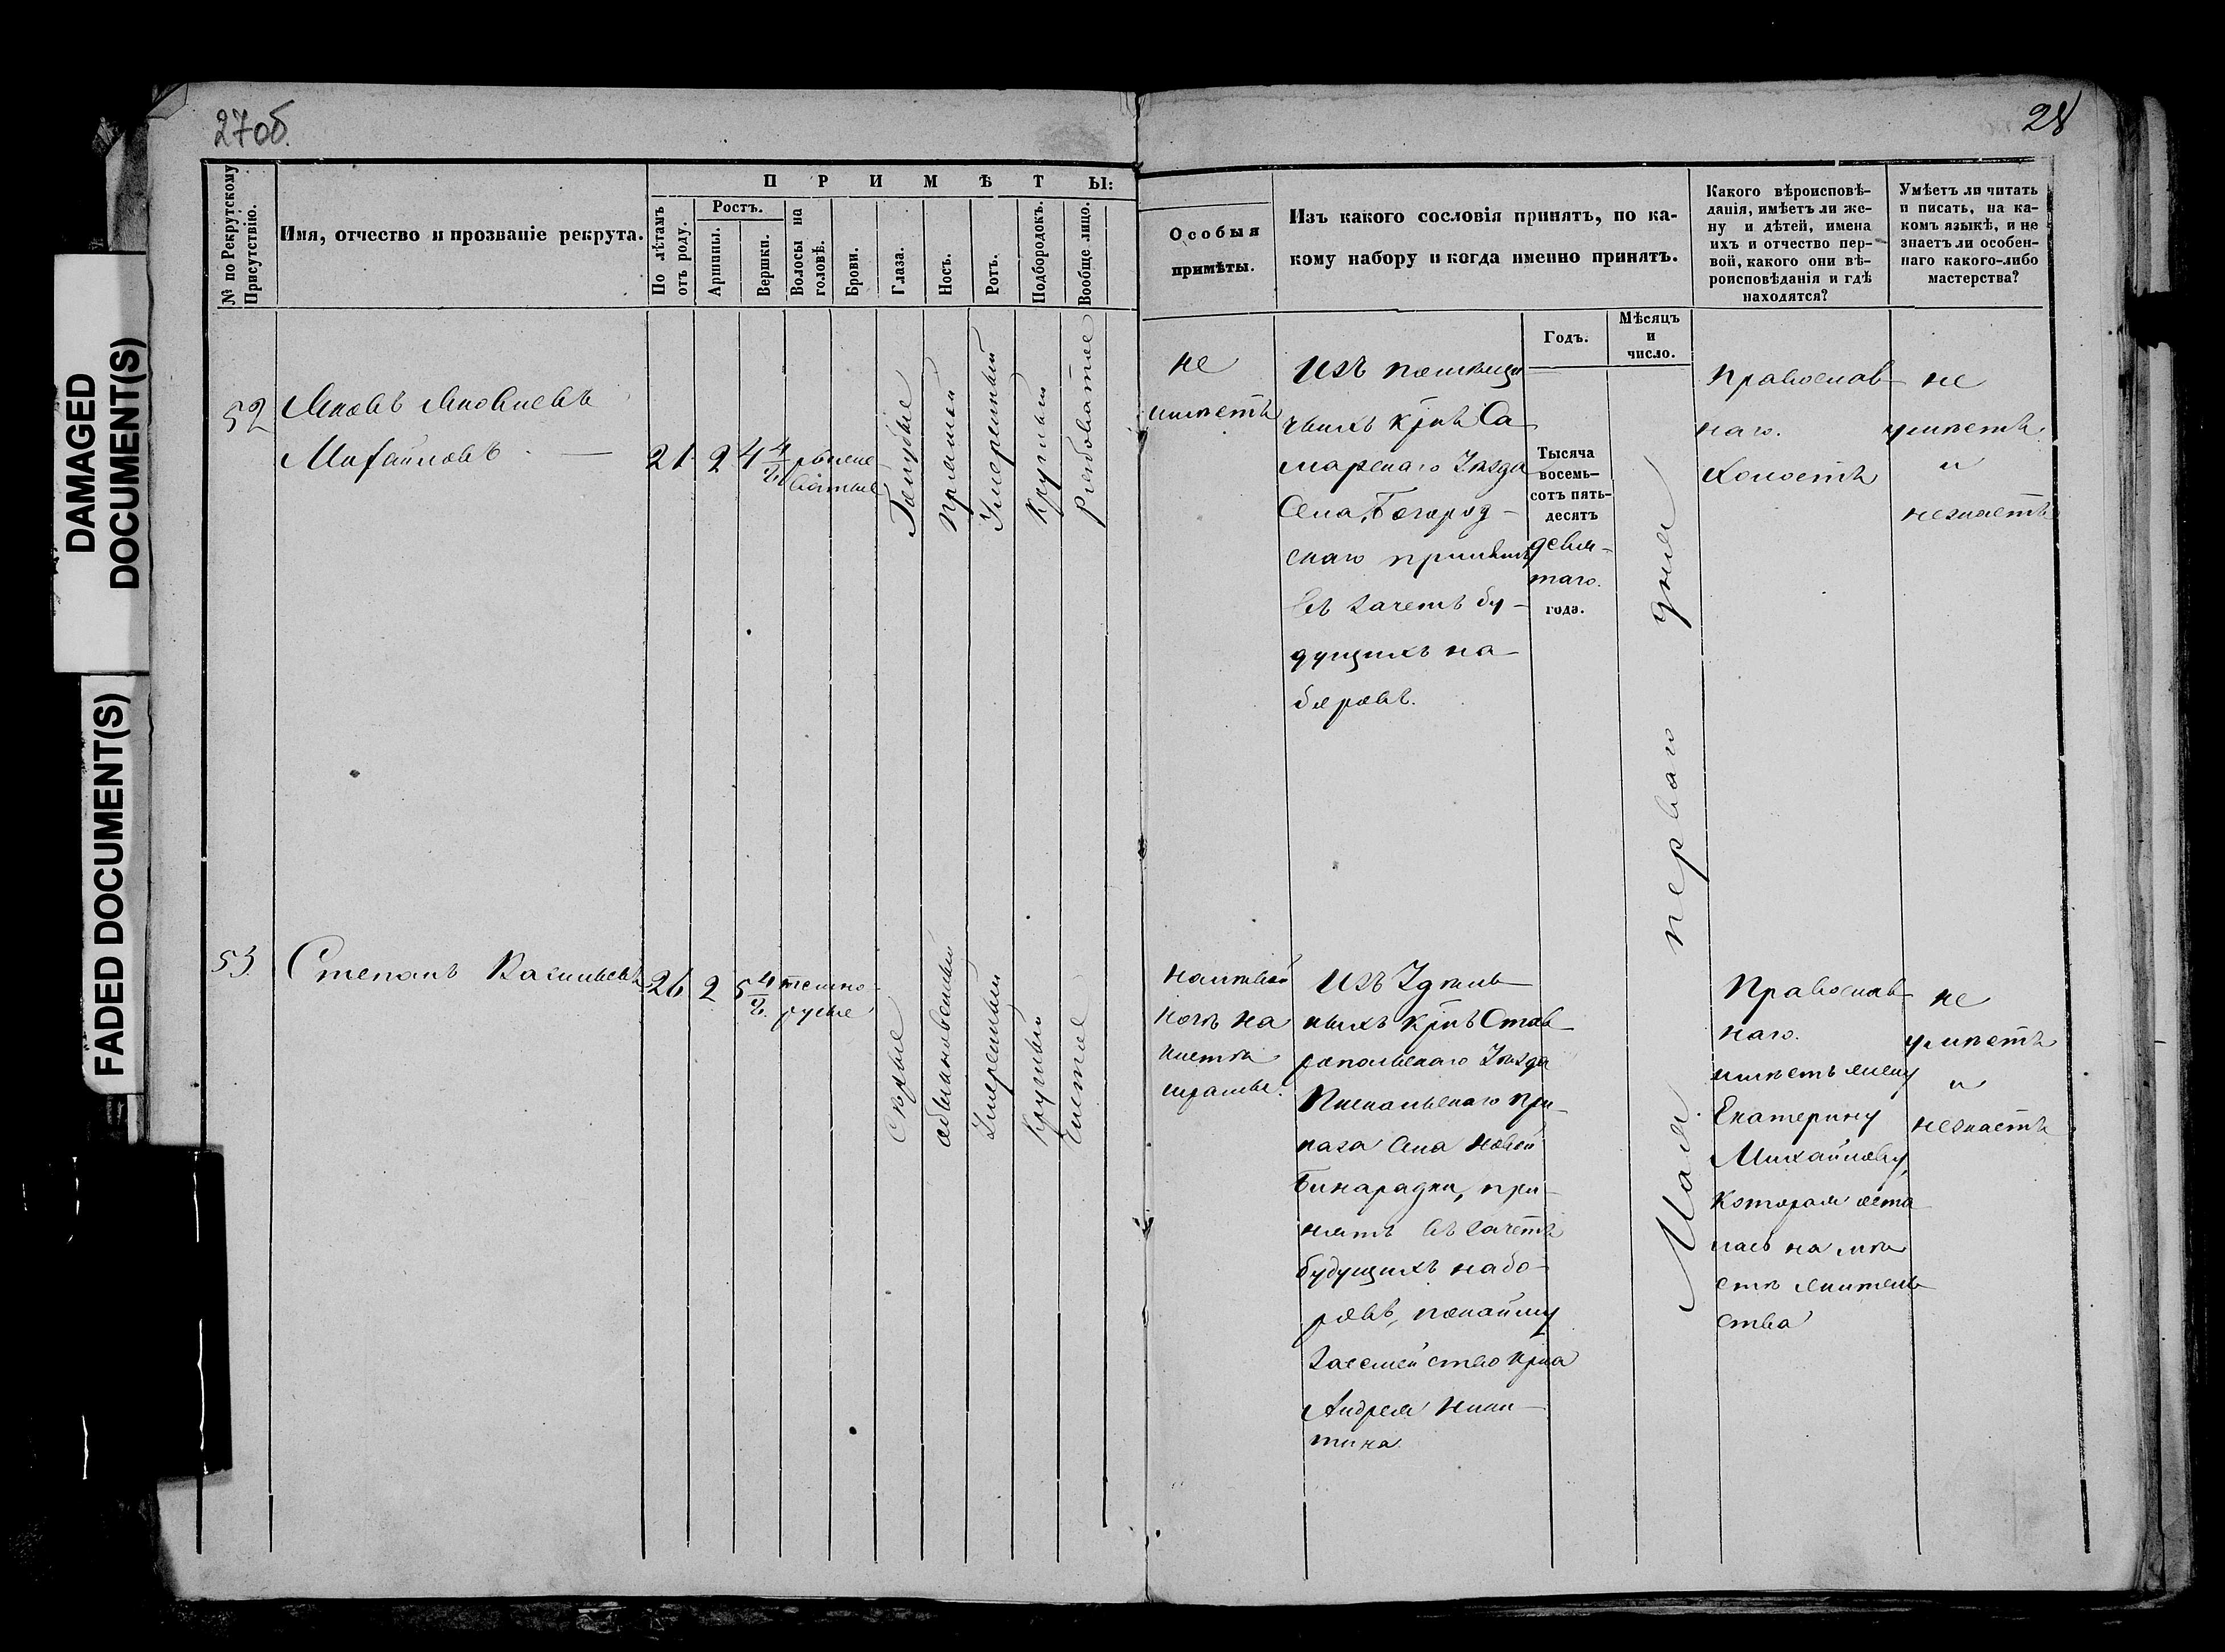 27об.
28
DAMAGED
DOCUMENT(S)
FADED DOCUMENT(S)
№ по Рекрутскому
Присутствію.
Имя, отчество и прозваніе рекрута.
ПРИМѢТЫ:
По лѣтамъ
отъ роду.
Ростъ.
Аршины.
Вершки.
Волосы на
головѣ.
Брови.
Глаза.
Носъ.
Ротъ.
Подбородокъ.
Вообще лицо.
Особыя
примѣты.
Изъ какого сословія принятъ, по ка-
кому набору и когда именно принятъ.
Годъ.
Мѣсяцъ
и
число.
Какого вѣроисповѣ-
данія, имѣетъ ли же-
ну и дѣтей, имена
ихъ и отчество пер-
вой, какого они вѣ-
роисповѣданія и гдѣ
находятся?
Умѣетъ ли читать
и писать, на ка-
комъ языкѣ, и не
знаетъ ли особен-
наго какого-либо
мастерства?
52
Яковъ Яковлевъ
Михайловъ
21
2
4 4/2
Голубые
прямой
Умеренный
Круглый
Рябоватое
не
имѣетъ
Изъ помѣщи
чьихъ крнъ Са
марскаго Уѣзда
Села Богород-
скаго принятъ
въ зачетъ бу-
дущихъ на-
боровъ.
Тысяча
восемь-
сотъ пять-
десятъ
девя-
таго.
года.
Мая перваго дня
Православ-
наго.
Холостъ
не
умѣетъ
и
незнаетъ
53
Степанъ Васильевъ
26
2
5 4/2
темно-
русые
Сѣрые
обыкновенный
Умеренный
Круглый
Чистое
налѣвой
ногѣ на
икрѣ
шрамы.
Изъ Удѣль-
ныхъ крнъ Став-
ропольскаго Уѣзда
Пискальскаго При-
каза села Новой
Бинарадки, при-
нятъ въ зачетъ
будущихъ набо-
ровъ, понайму
засемейство крна
Андрея Ники-
тина
Православ-
наго.
имѣетъ жену
Екатерину
Михайлову,
которая оста
лась на мѣ
стѣ житель-
ства
не
умѣетъ
и
незнаетъ